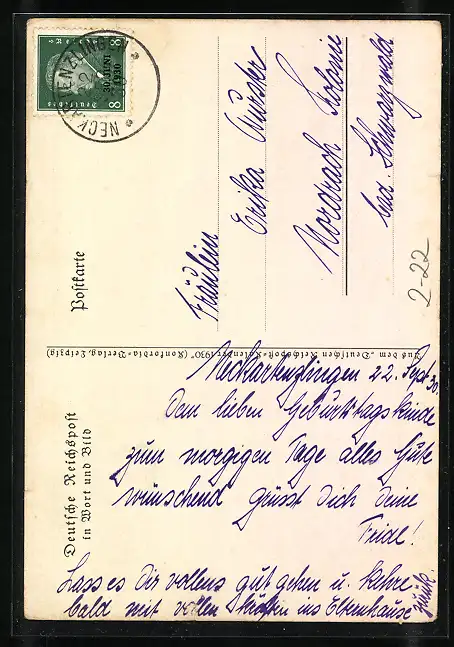 Deutsche Reichspost
in Wort und Bild
Postkarte
NECKARTENZLINGEN
Deutsches Reich
8 8
30. JUNI
1930
Fräulein
Erika Wurster
Nordrach Kolonie
bad. Schwarzwald
2-22
Aus dem „Deutschen Reichspost-Kalender 1930“ (Konkordia-Verlag, Leipzig)
Neckartenzlingen 22. Sept. 30.
Dem lieben Geburtstagskinde
zum morgigen Tage alles Gute
wünschend grüsst Dich Deine
Friedl!
Lass es Dir vollens gut gehen u. kehre
bald mit vollen Kräften ins Elternhause
zurück.